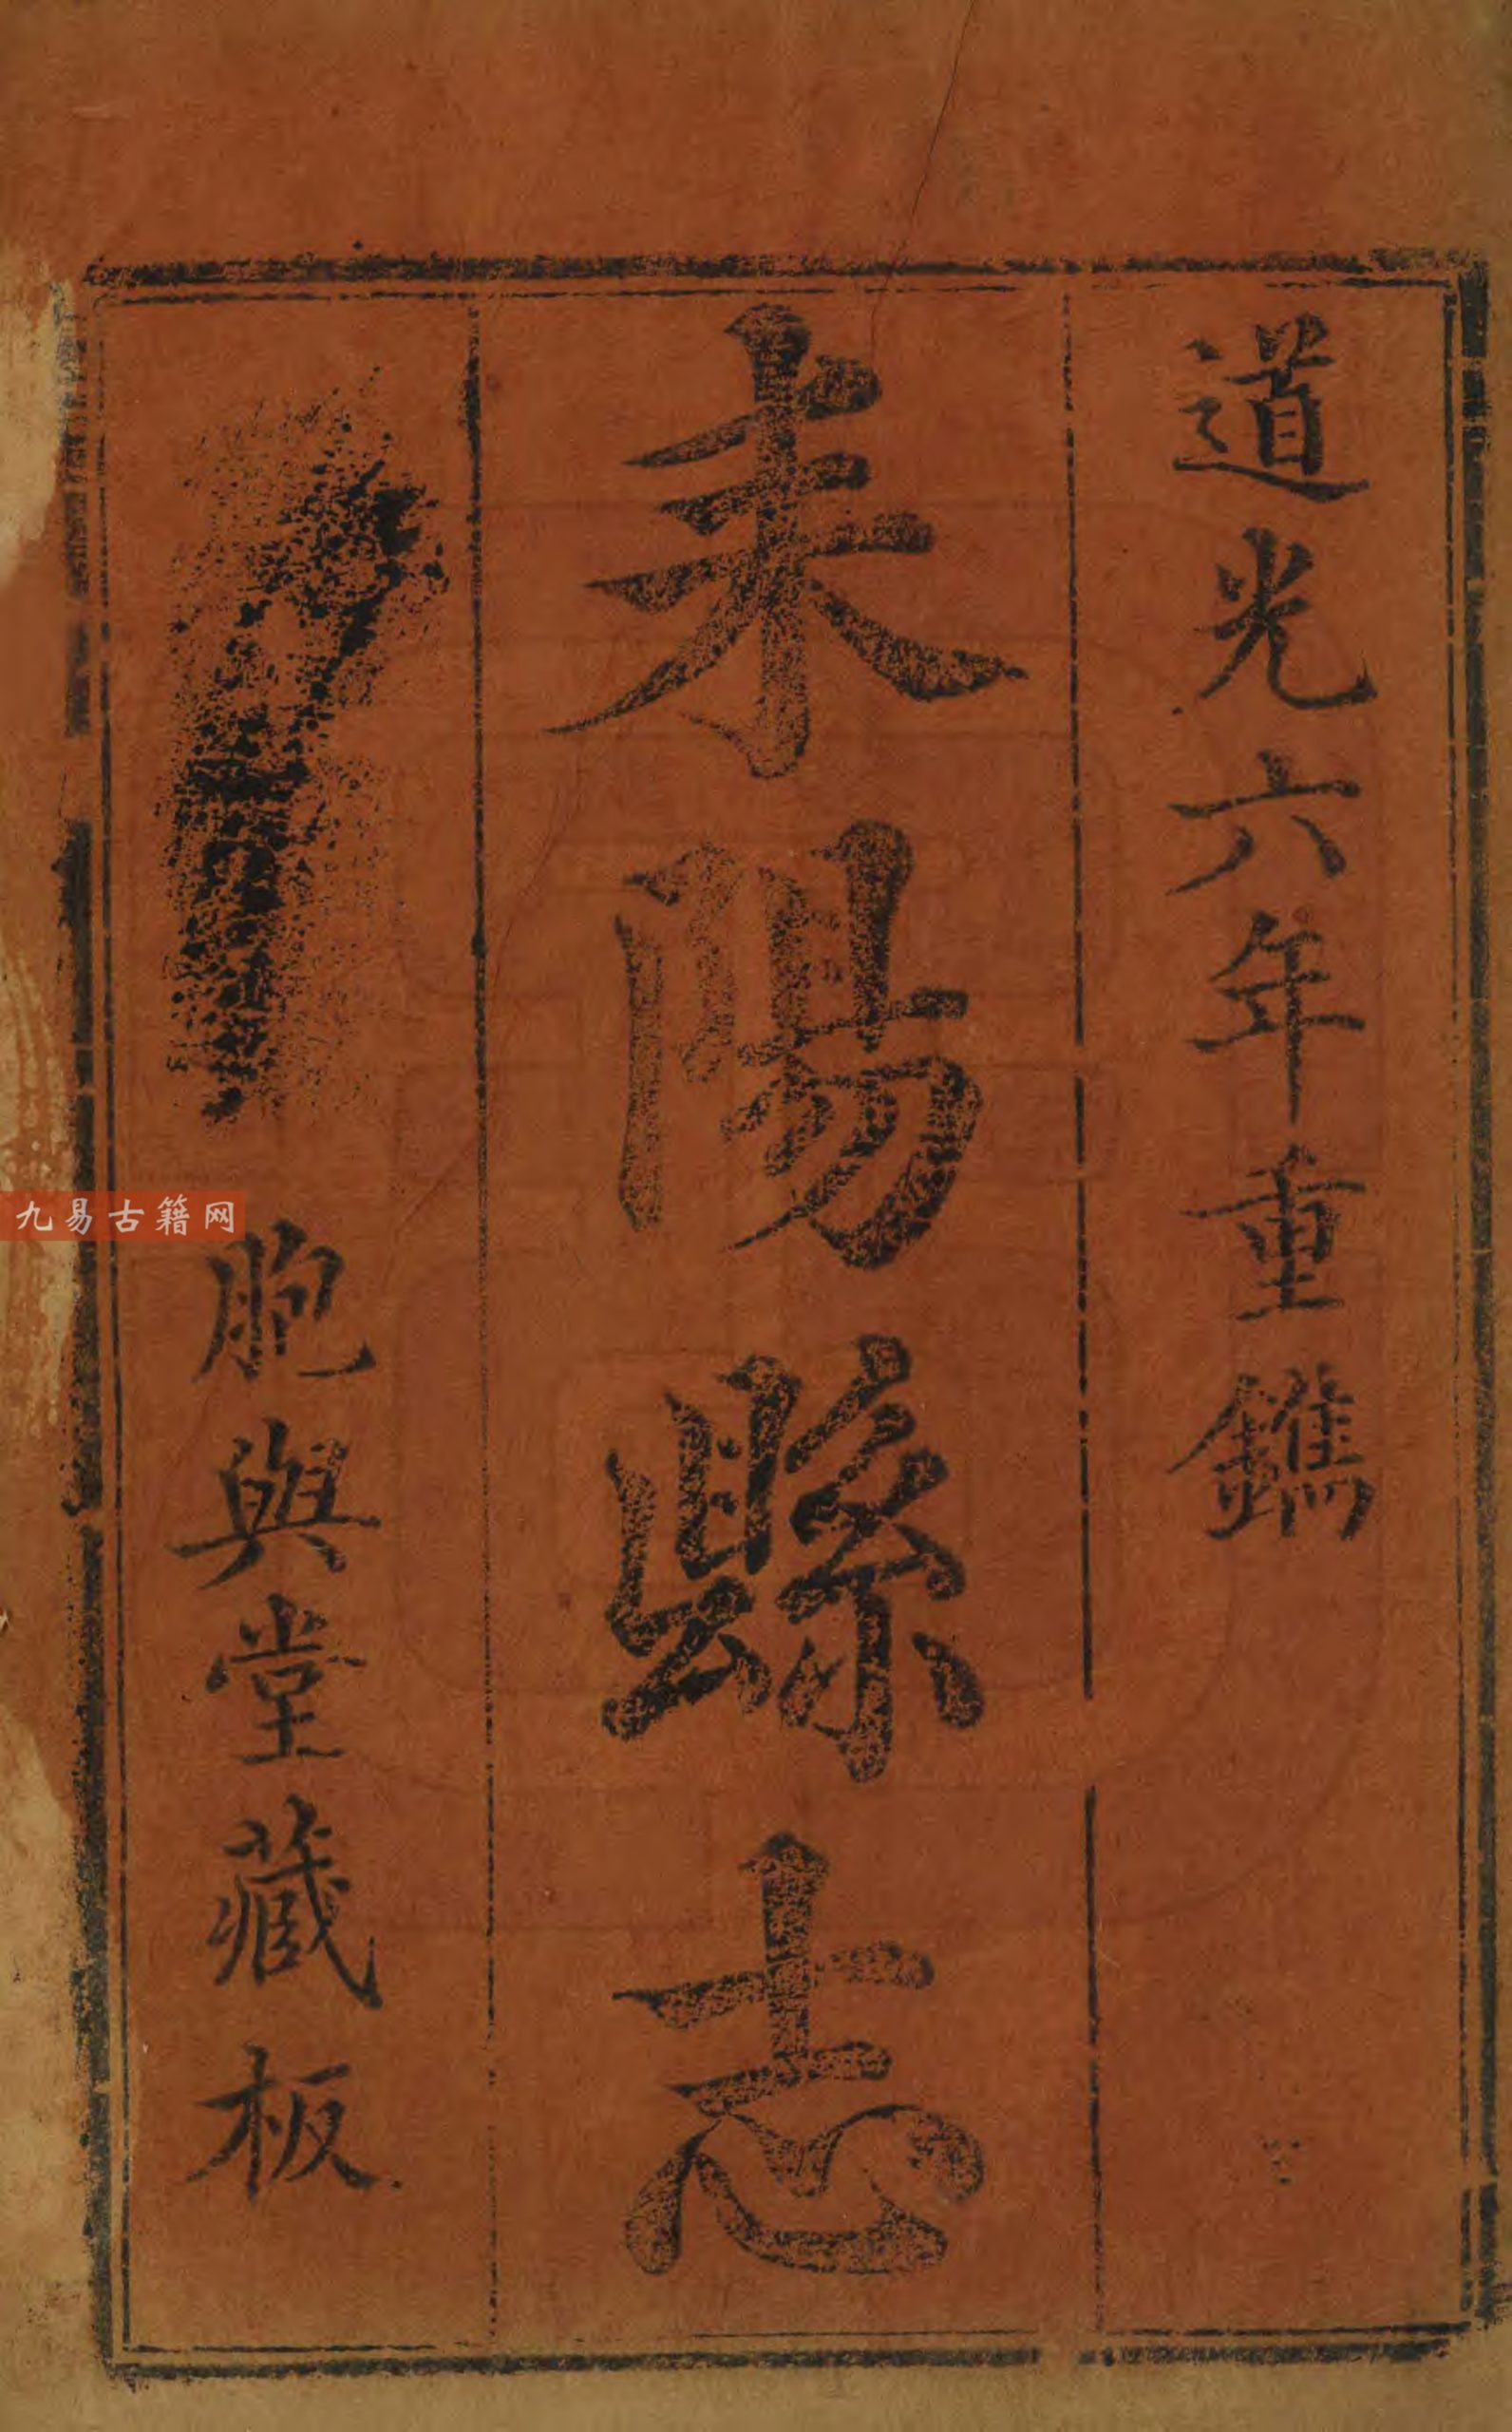 道光六年重鐫
耒陽縣志
胞與堂藏板
九易古籍网